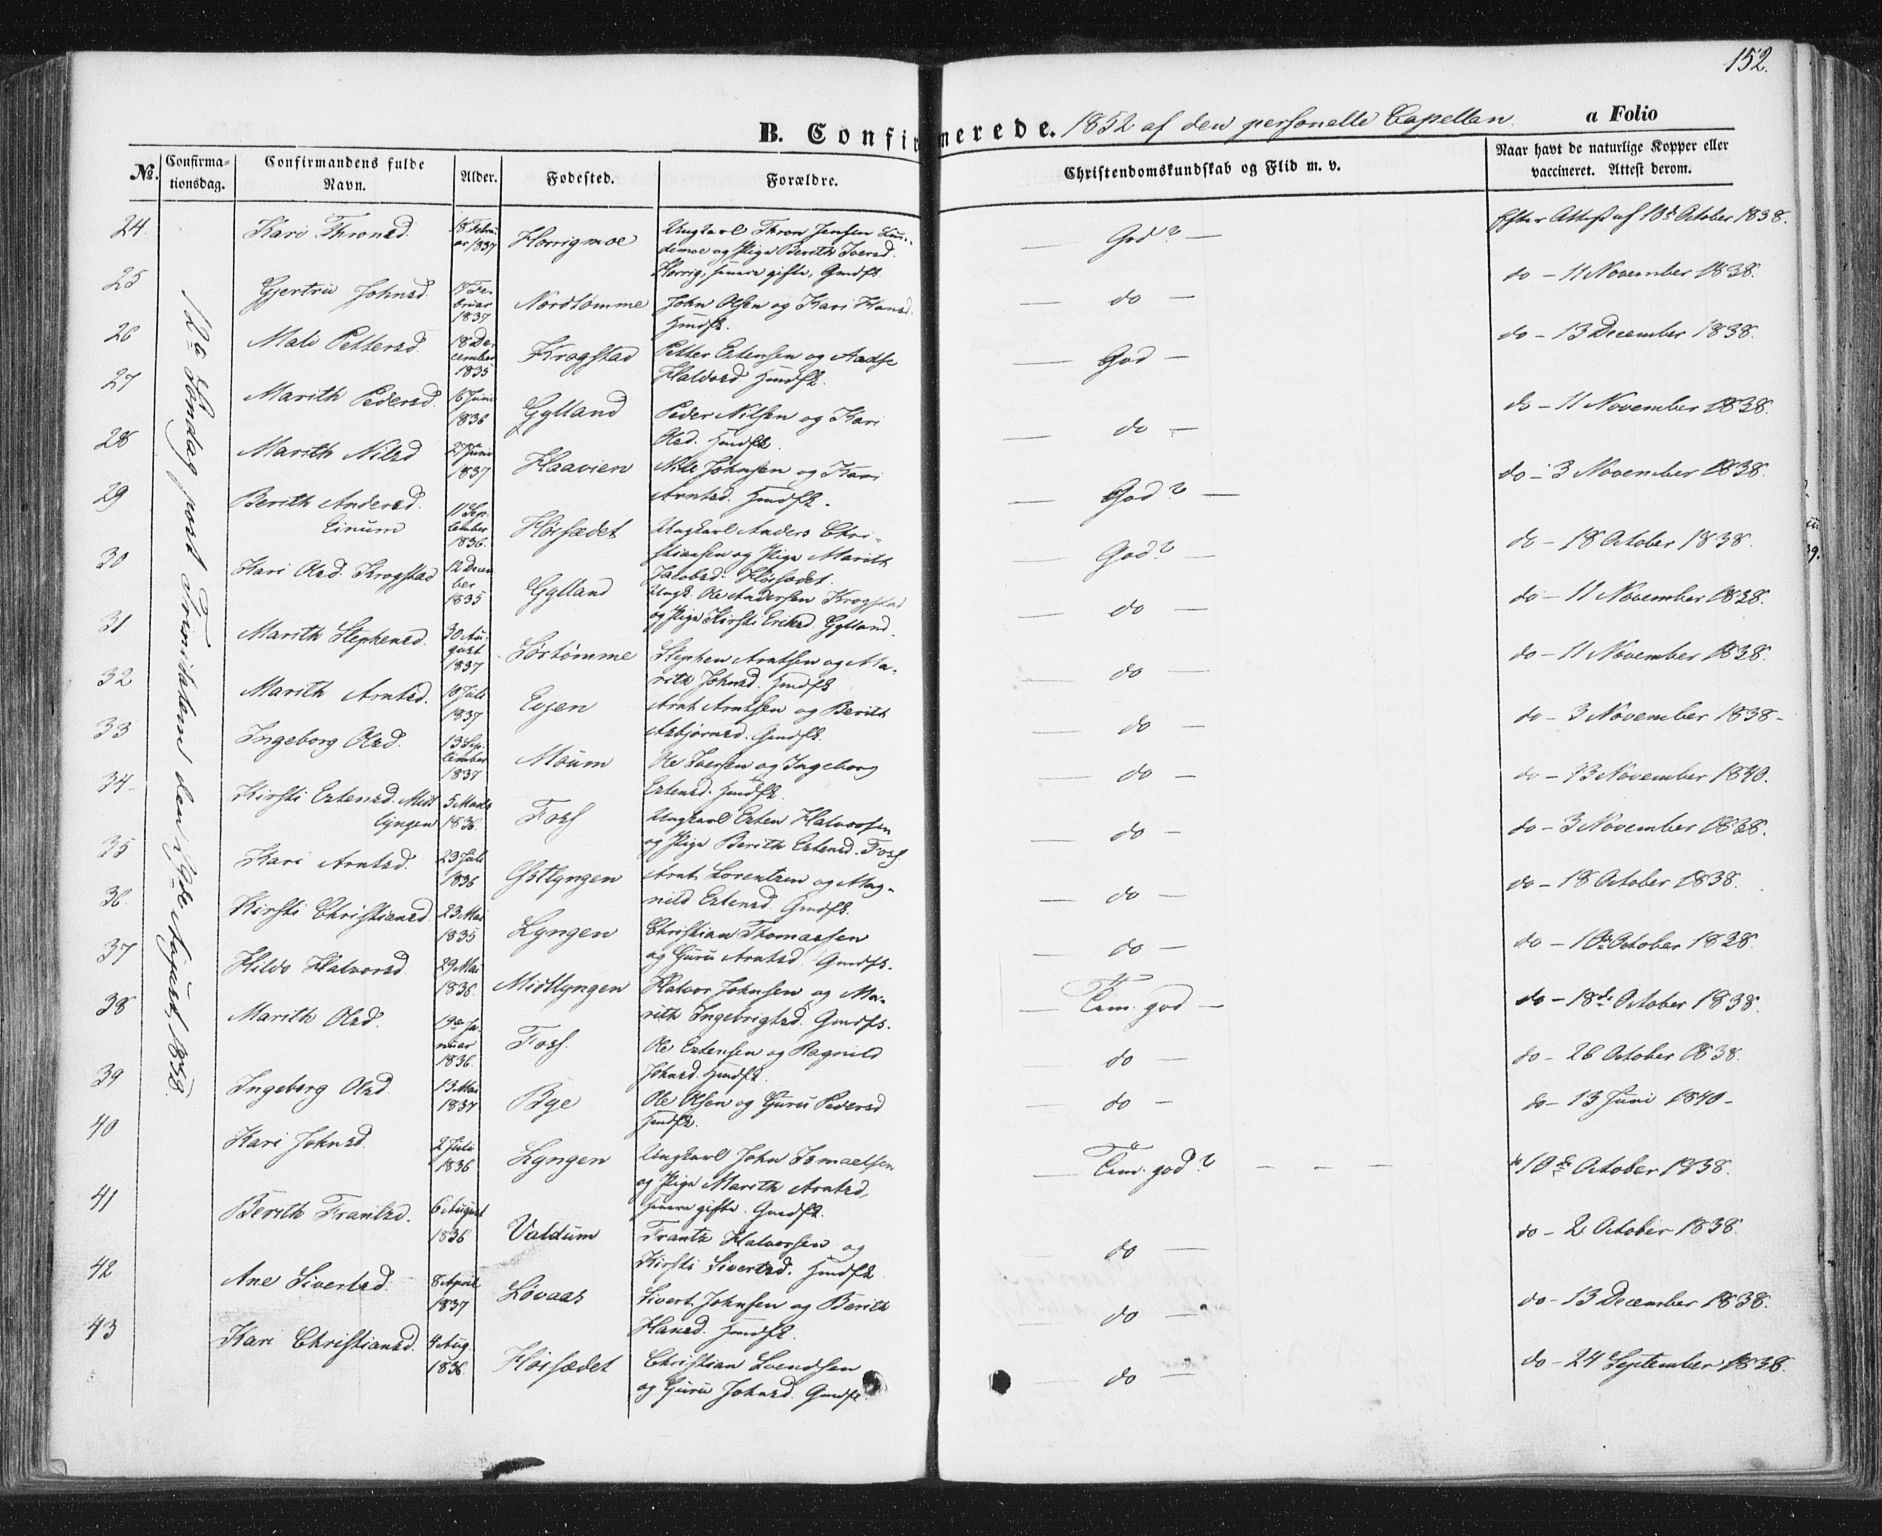 152.
B. Confirmerede. 1852 af den personelle Capellan. a Folio
No. Confirmationsdag. Confirmandens fulde Navn. Alder. Fødested. Forældre. Christendomskundskab og Flid m. v. Naar havt de naturlige Kopper eller vaccineret. Attest derom.
24 Kari Thronsd. 18 Februar 1837 Horrigmoe Ungkarl Thron Jensen og Pige Berith Iversd. Horrig, senere gifte, Gmdfk. — God? — Efter Attest af 10d October 1838.
25 Gjertru Johnsd. Februar 1837 Nordtømme John Olsen og Kari Hansd. Hmdfk. — do — do - 11 November 1838.
26 Mali Pettersd 18 December 1835 Krogstad Petter Estensen og Halvorsd. Hmdfk. — God — do - 13 December 1838.
27 Marith Pedersd. 6 Juni 1836 Gylland Peder Nilsen og Kari Olsd. Hmdfk. — do — do - 11 November 1838.
28 Marith Nilsd 27 Juni 1837 Haavien Nils Johnsen og Kari Arntsd. Hmdfk. — God? — do - 3 November 1838.
29 Berith Andersd. Einum 11 September 1836. Høisædet Ungkarl Anders Christiansen og Pige Marith Jacobsd. Høisædet. — God? — do - 18 October 1838.
30 Kari Olsd. Krogstad 12 December 1835 Gylland Ungk. Ole Andersen Krogstad og Pige Kirsti Ericsd. Gylland. — do — do - 11 November 1838.
31 Marith Stephensd. 30 August 1837 Sørtømme Stephen Arntsen og Marith Johnsd. Hmdfk — do — do - 11 November 1838.
32 Marith Arntsd. 10 Juli 1837 Evjen Arnt Arntsen og Berith Asbjørnsd. Gmdfk. — do — do - 3 November 1838.
33 Ingeborg Olsd. 13 September 1837 Moum Ole Iversen og Ingeborg Estensd. Hmdfk. — do — do - 13 November 1840.
34 Kirsti Estensd. Midtlyngen 5 Marts 1836. Foss Ungkarl Esten Halvorsen og Pige Berith Estensd. Foss — do — do - 3 November 1838.
35 Kari Arntsd. 23 Juli 1836 Østlyngen Arnt Lorentzen og Magnild Estensd. Gmdfk. — do — do - 18 October 1838.
36. Kirsti Christiansd. 23 Mai 1835 Lyngen Christian Thomassen og Guru Arntsd. Gmdfk. — do — do - 10de October 1838.
37 Hildo Halvorsd. 29 Mai 1836. Midtlyngen Halvor Johnsen og Marith Ingebrigtsd. Gmdfk. — Tem. god — do - 18de October 1838.
38 Marith Olsd. 19de Januar 1836. Foss. Ole Estensen og Ragnild Johnsd. Hmdfk. — do — do - 26 October 1838.
39 Ingeborg Olsd. 13 Mai 1837 Bye Ole Olsen og Guru Pedersd Hmdfk. — do — do - 13 Juni 1840.
40 Kari Johnsd. 2 Juli 1836 Lyngen Ungkarl John Ismaelsen og Pige Marith Arntsd, senere gifte. Gmdfk. — Tem. god? — — — 10de October 1838.
41 Berith Frantsd. 6 August 1836 Valdum Frantz Halvorsen og Kirsti Sivertsd. Hmdfk. — do — do - 2 October 1838.
42 Ane Sivertsd. 8 April 1837 Løvaas Sivert Johnsen og Berith Hansd. Hmdfk. — do — do - 13 December 1838.
43 Kari Christiansd. 4 Aug. 1836. Høisædet Christian Svendsen og Guru Johnsd. Gmdfk. — do — do - 24 September 1838.
12te Søndag post Trinitatem den August 1858.